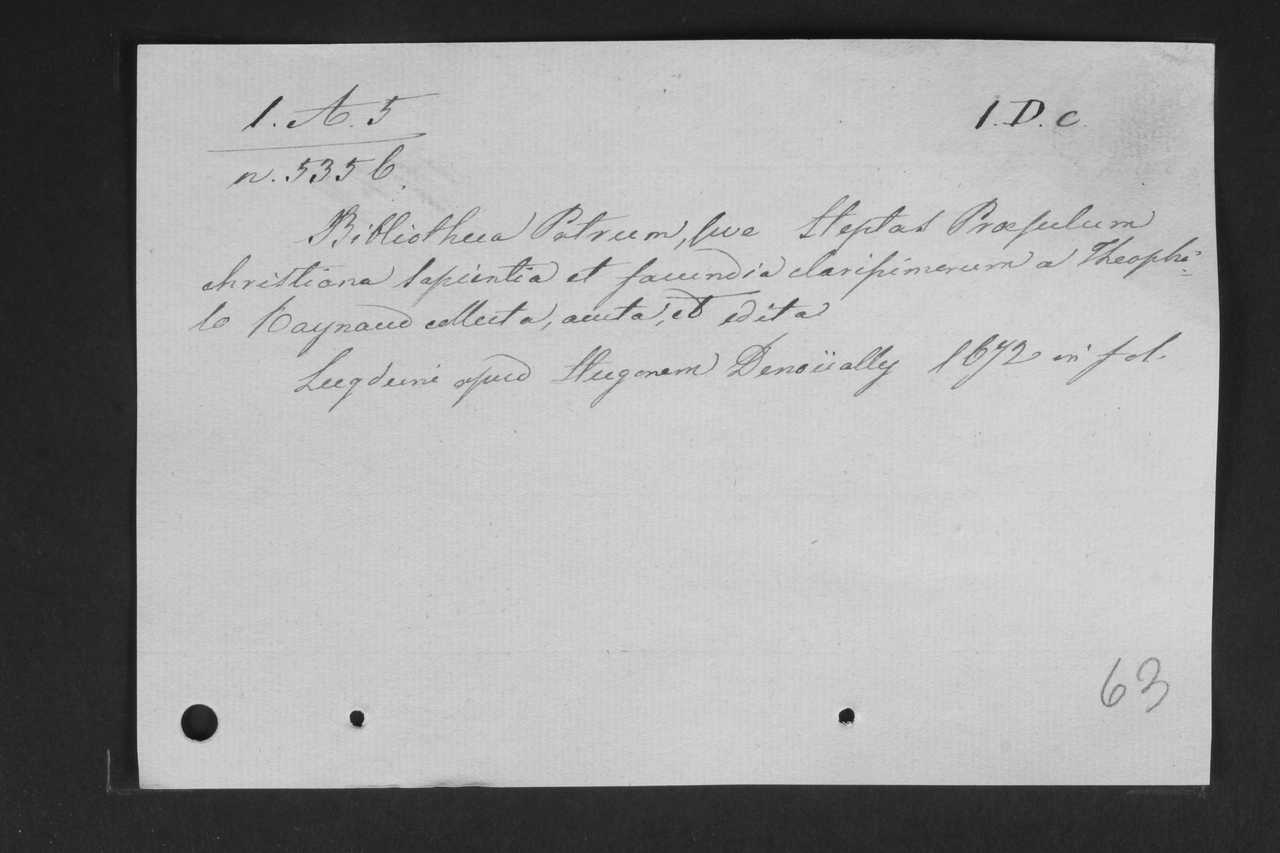 1. A. 5
1. D. c.
n. 5356.
Bibliotheca Patrum, sive Heptas Præsulum
christiana sapientia et facundia clarissimorum a Theophi=
lo Raynaud collecta, aucta, et edita
Lugduni apud Hugonem Denoüally 1672 in fol.
63